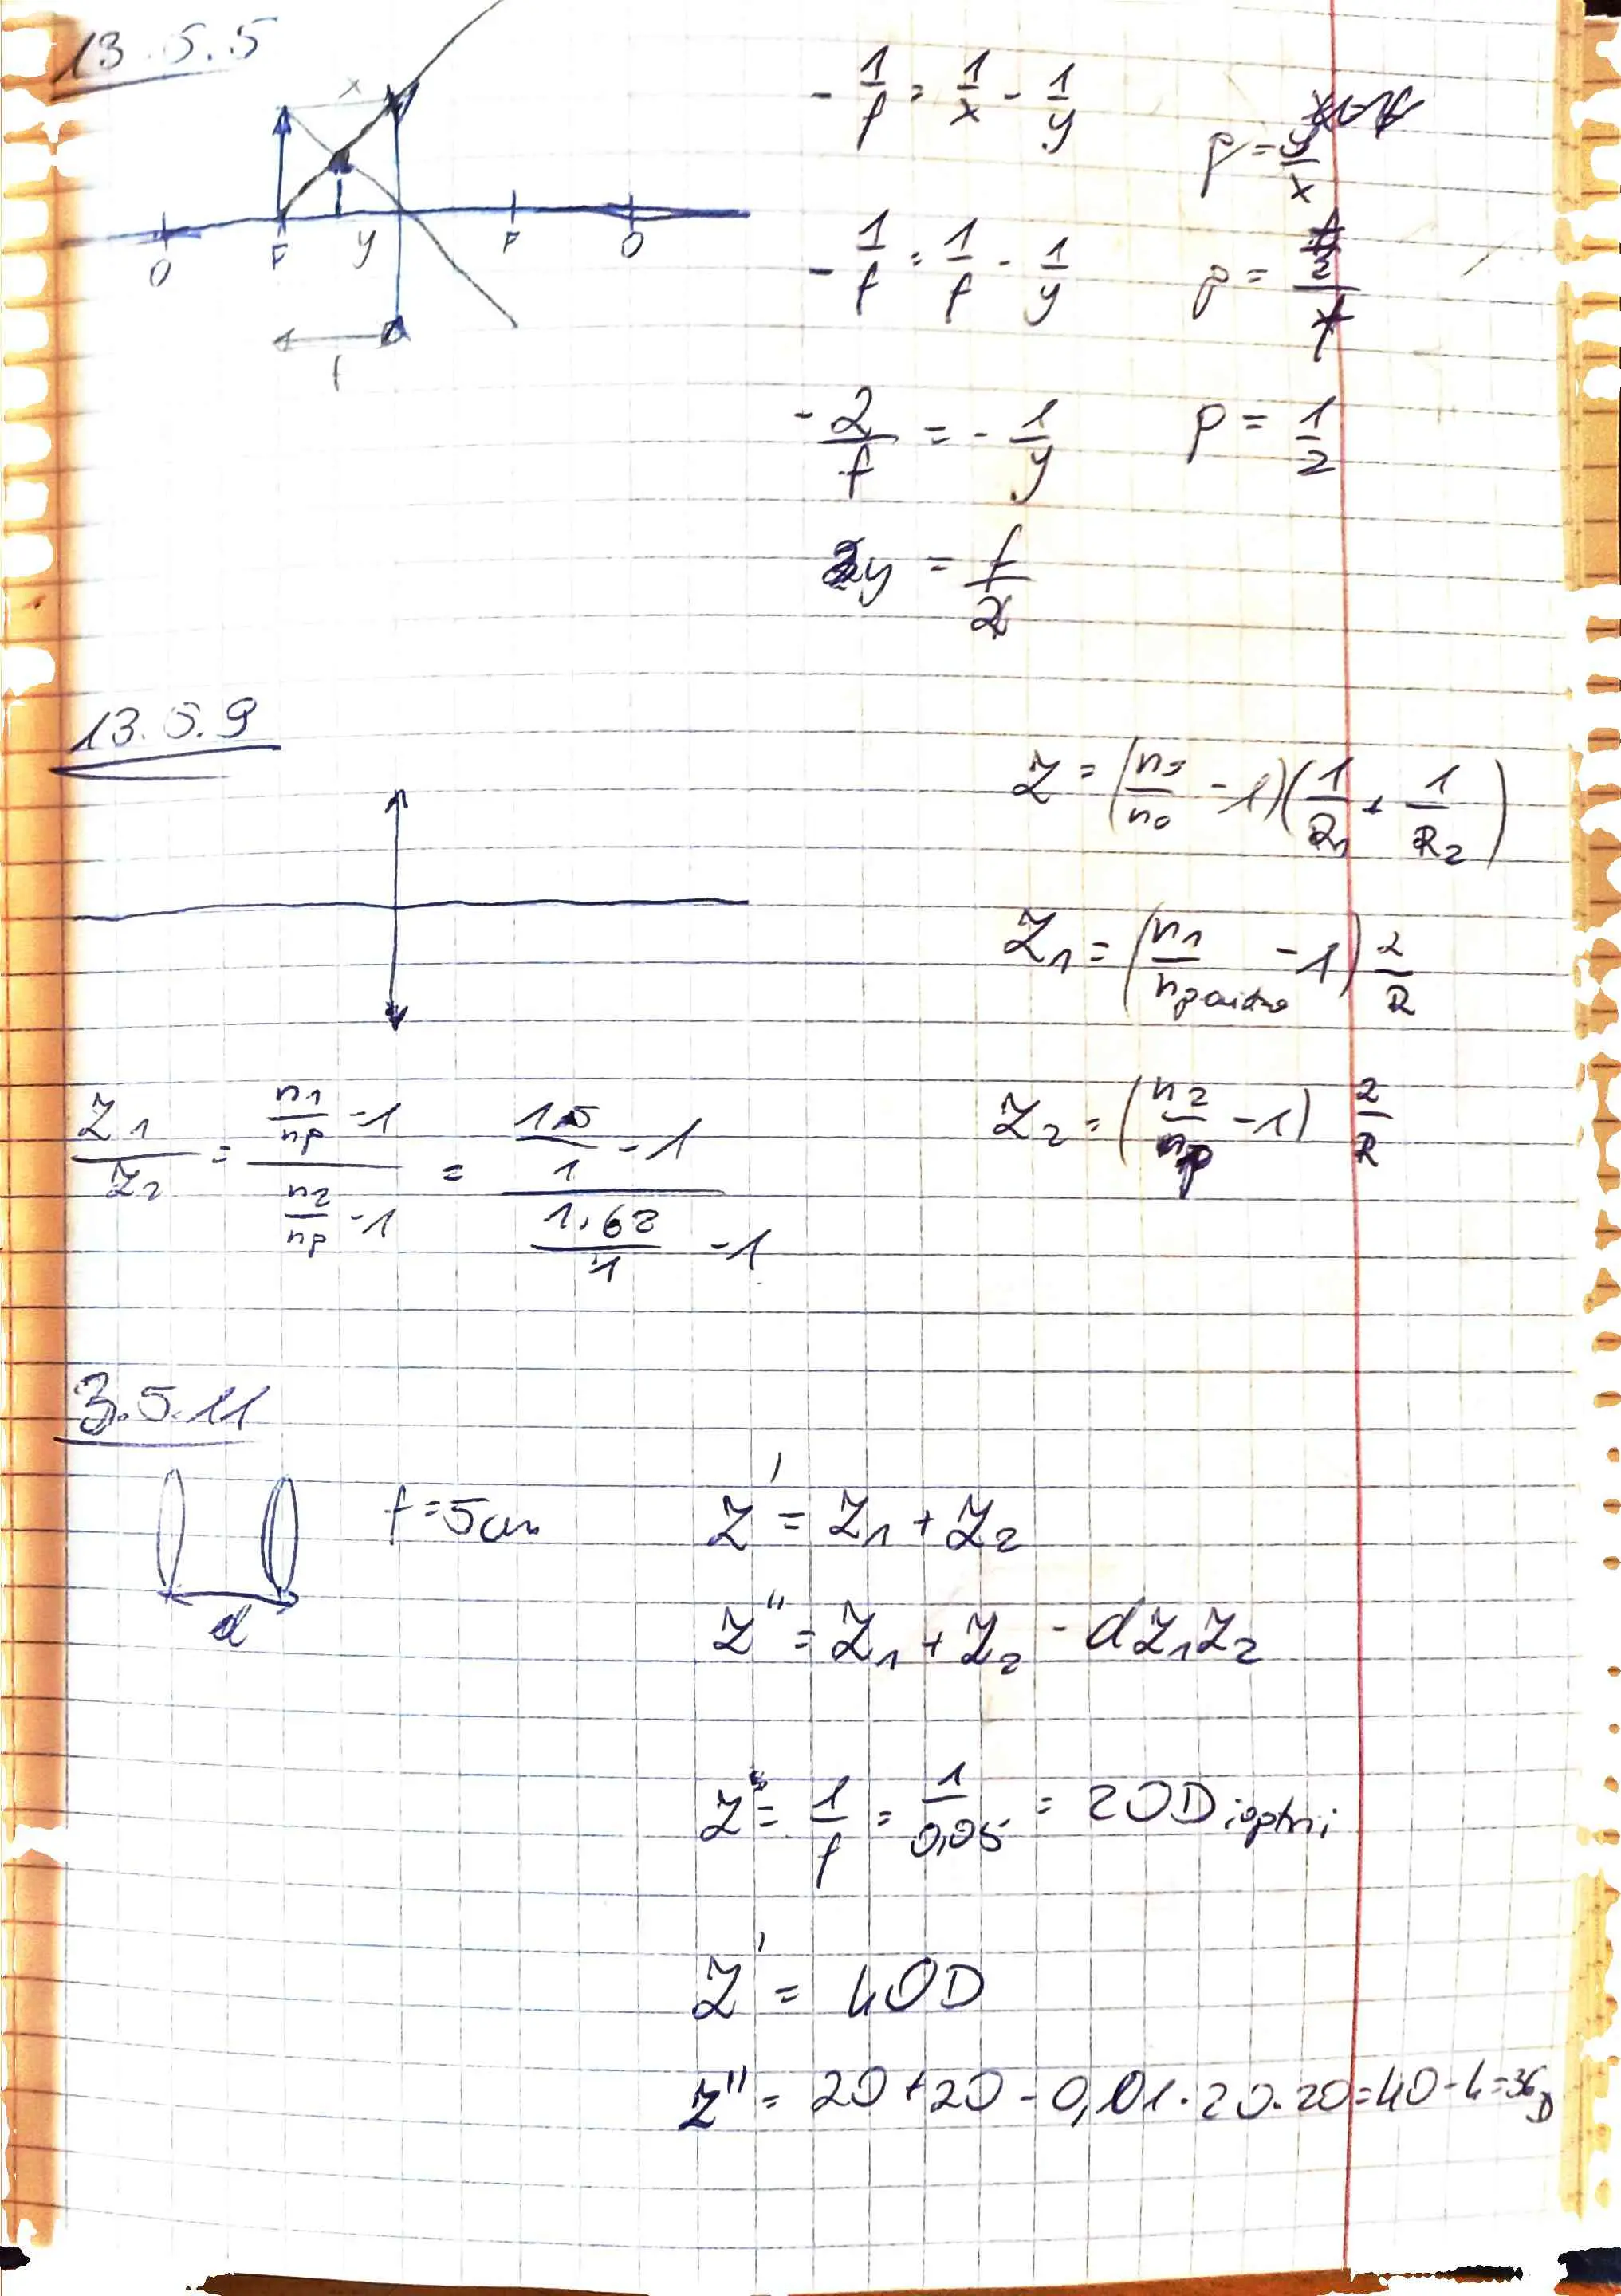 13.5.5
x
O F y F O
f
- 1/f = 1/x - 1/y
p = y/x
- 1/f = 1/f - 1/y
p = f/2 / f
- 2/f = - 1/y
p = 1/2
y = f/2
13.5.9
Z = (ns/no - 1)(1/R1 + 1/R2)
Z1 = (n1/n - 1) 2/R
Z1/Z2 = (n1/np - 1)/(n2/np - 1) = (1,5/1 - 1)/(1,62/1 - 1)
Z2 = (n2/np - 1) 2/R
3.5.11
d
f = 5cm
Z' = Z1 + Z2
Z'' = Z1 + Z2 - dZ1Z2
Z = 1/f = 1/0,05 = 20 Dioptrii
Z' = 40D
Z'' = 20 + 20 - 0,01 · 20 · 20 = 40 - 4 = 36D